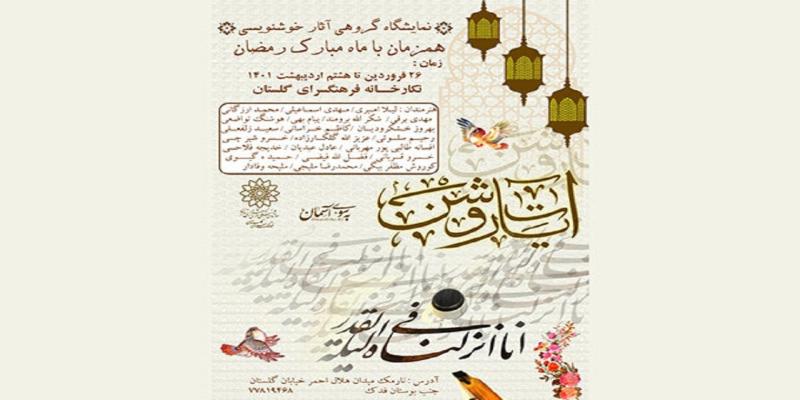 نمایشگاه گروهی آثار خوشنویسی
همزمان با ماه مبارک رمضان
زمان :
۲۶ فروردین تا هشتم اردیبهشت ۱۴۰۱
نگارخانه فرهنگسرای گلستان
هنرمندان : لیلا امیری / مهدی اسماعیلی / محمد ارزگانی
مهدی برقی / شکر الله برومند / پیام بهی / هوشنگ تواضعی
بهروز خشکرودیان / کاظم خراسانی / سعید زلفعلی
رحیم سلوتی / عزیز الله گلکارزاده / خسرو شیرچی
افسانه طالبی پور مهربانی / عادل عبدیان / خدیجه فلاحی
خسرو قربانی / فضل الله فیضی / حمیده گیوی
کوروش مظفر بیگی / محمدرضا ملیجی / ملیحه وفادار
آیات روشن
بسوی آسمان
انا انزلناه فی لیلة القدر
آدرس : نارمک میدان هلال احمر خیابان گلستان
جنب بوستان فدک ۷۷۸۱۹۴۶۸